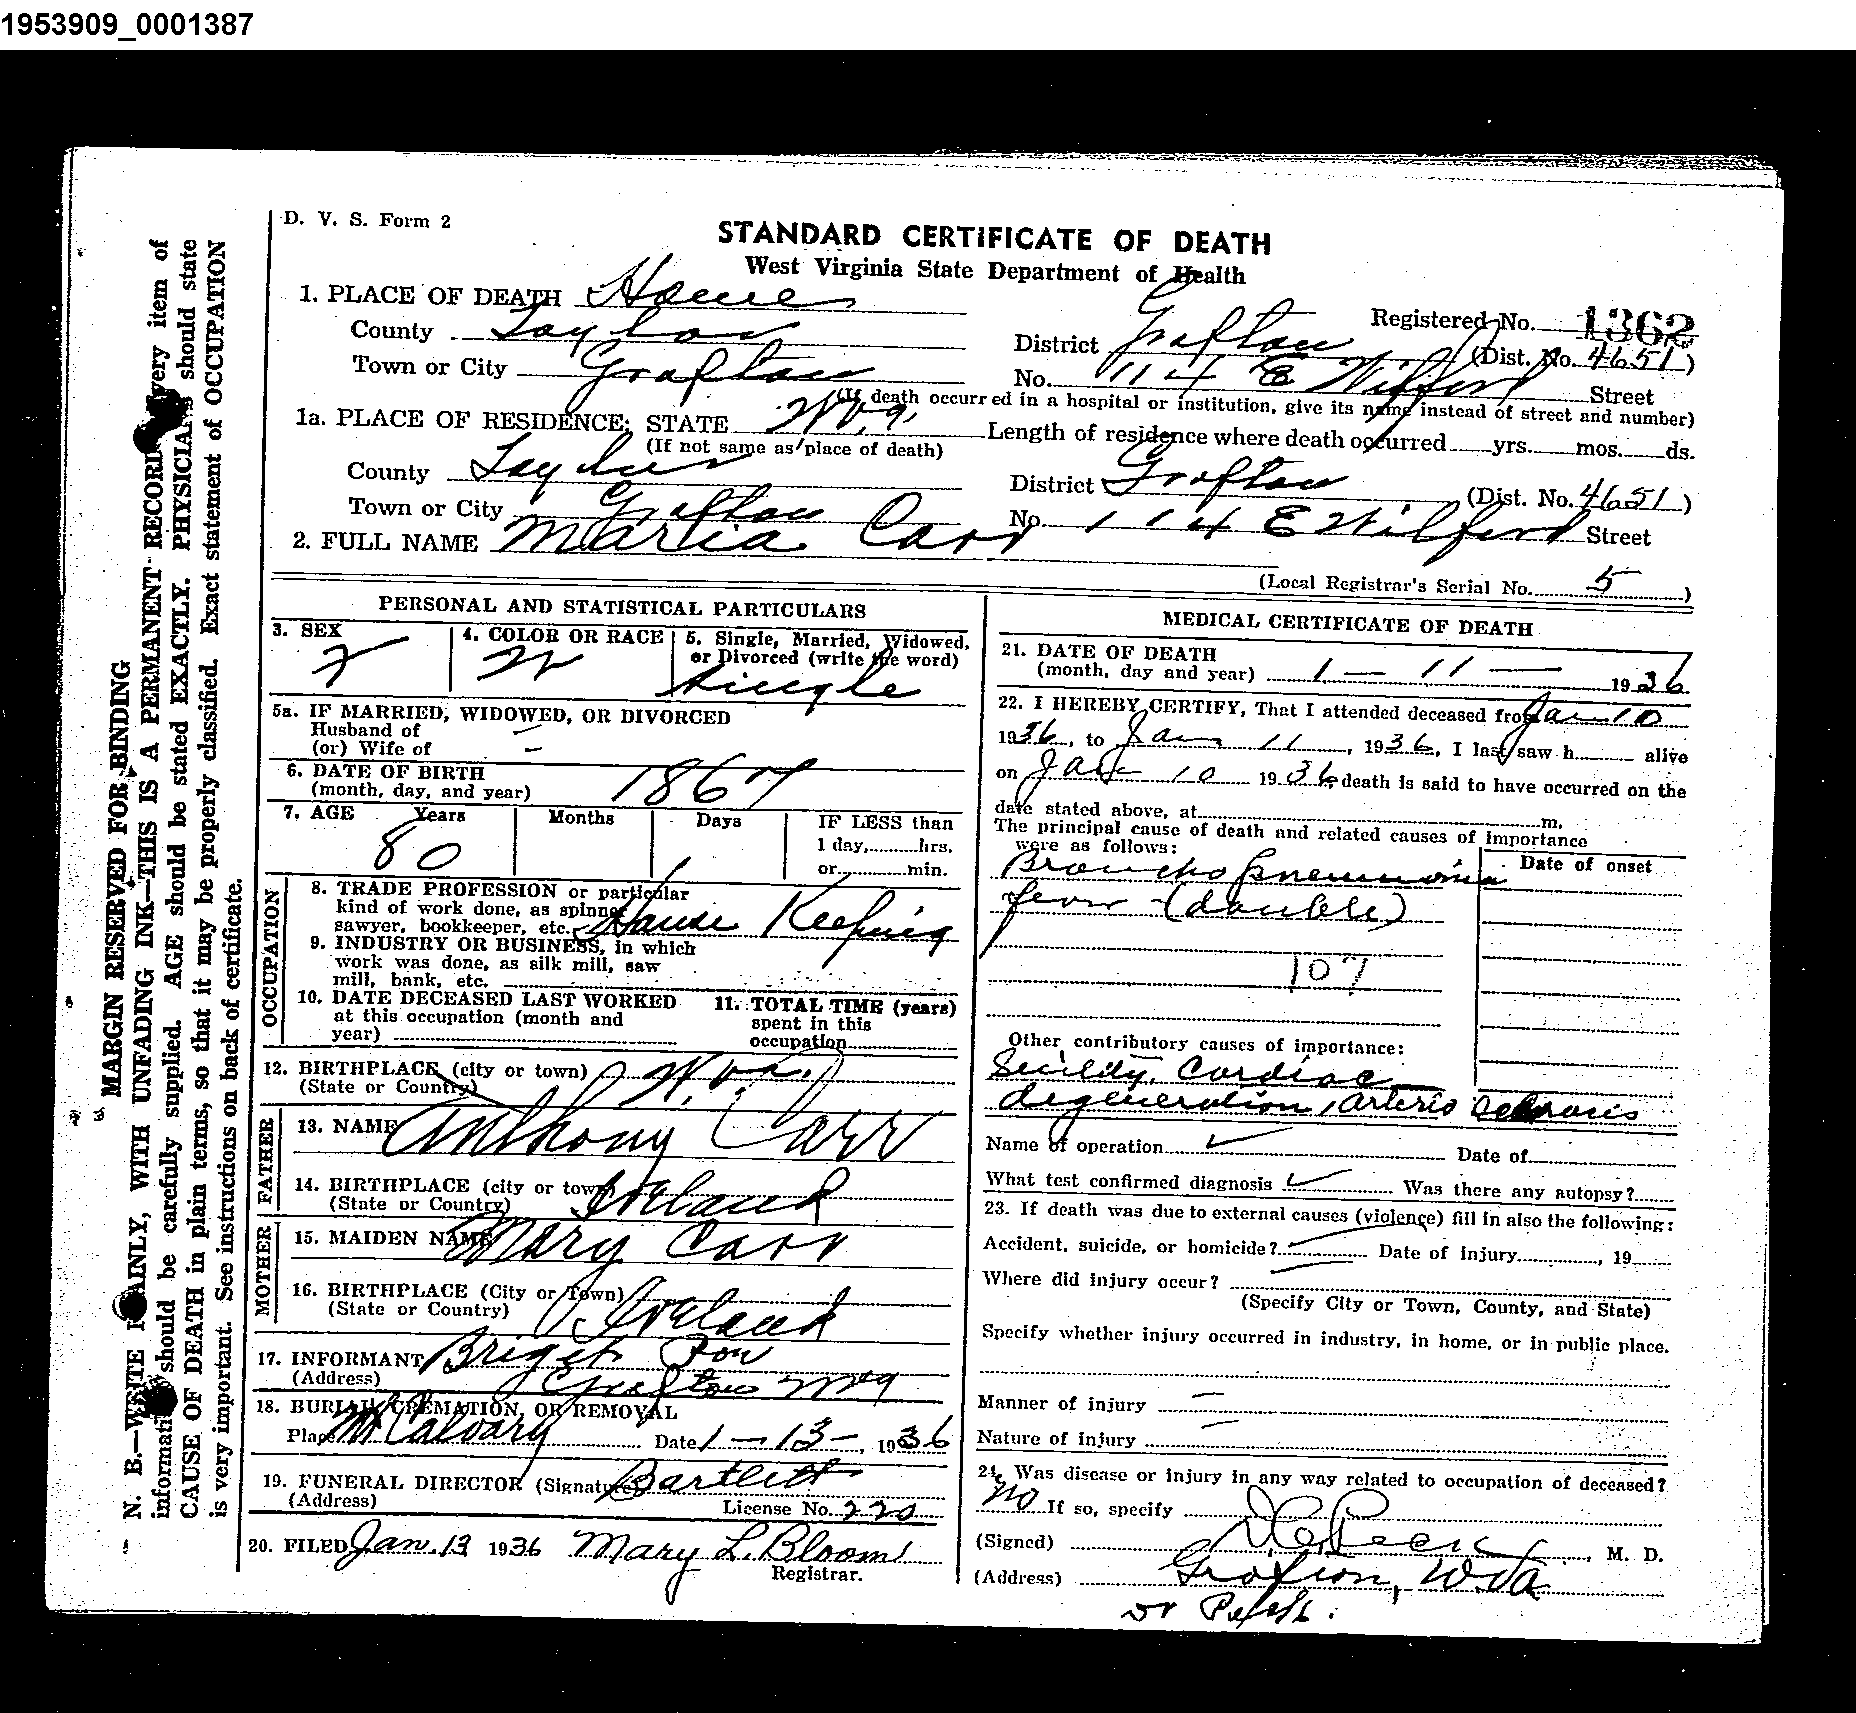 1953909_0001387
D. V. S. Form 2
STANDARD CERTIFICATE OF DEATH
West Virginia State Department of Health
1. PLACE OF DEATH Home
Registered No. 1362
County Taylor
District Grafton (Dist. No. 4651)
Town or City Grafton
No. 114 E Wilford Street
(If death occurred in a hospital or institution, give its name instead of street and number)
1a. PLACE OF RESIDENCE: STATE W Va.
Length of residence where death occurred yrs. mos. ds.
(If not same as place of death)
County Taylor
District Grafton (Dist. No. 4651)
Town or City Grafton
No. 114 E Wilford Street
2. FULL NAME Maria Carr
(Local Registrar's Serial No. 5)
PERSONAL AND STATISTICAL PARTICULARS
3. SEX F
4. COLOR OR RACE W
5. Single, Married, Widowed, or Divorced (write the word) Single
5a. IF MARRIED, WIDOWED, OR DIVORCED
Husband of –
(or) Wife of –
6. DATE OF BIRTH
(month, day, and year) 1867
7. AGE Years Months Days IF LESS than
80
1 day, hrs.
or min.
OCCUPATION
8. TRADE PROFESSION or particular
kind of work done, as spinner,
sawyer, bookkeeper, etc. House Keeping
9. INDUSTRY OR BUSINESS, in which
work was done, as silk mill, saw
mill, bank, etc.
10. DATE DECEASED LAST WORKED
at this occupation (month and
year)
11. TOTAL TIME (years)
spent in this
occupation
12. BIRTHPLACE (city or town) W. Va.
(State or Country)
FATHER
13. NAME Anthony Carr
14. BIRTHPLACE (city or town) Ireland
(State or Country)
MOTHER
15. MAIDEN NAME Mary Carr
16. BIRTHPLACE (City or Town)
(State or Country) Ireland
17. INFORMANT Briget
(Address) Grafton
18. BURIAL, CREMATION, OR REMOVAL
Place Mt Calvary Date 1-13-, 1936
19. FUNERAL DIRECTOR (Signature) Bartlett
(Address) License No. 220
20. FILED Jan. 13 1936 Mary L. Bloom
Registrar.
MEDICAL CERTIFICATE OF DEATH
21. DATE OF DEATH
(month, day and year) 1 — 11 — 1936
22. I HEREBY CERTIFY, That I attended deceased from Jan 10
1936, to Jan 11, 1936, I last saw h alive
on Jan 10 1936, death is said to have occurred on the
date stated above, at m.
The principal cause of death and related causes of importance
were as follows:
Date of onset
Broncho pneumonia
fever (double)
107
Other contributory causes of importance:
Senility, Cardiac
degeneration, Arterio sclerosis
Name of operation ✓ Date of
What test confirmed diagnosis ✓ Was there any autopsy?
23. If death was due to external causes (violence) fill in also the following:
Accident, suicide, or homicide? Date of injury, 19
Where did injury occur?
(Specify City or Town, County, and State)
Specify whether injury occurred in industry, in home, or in public place.
Manner of injury –
Nature of injury –
24. Was disease or injury in any way related to occupation of deceased?
No If so, specify
(Signed) Peck, M. D.
(Address) Grafton, W. Va
Dr Peck.
MARGIN RESERVED FOR BINDING
N. B.—WRITE PLAINLY, WITH UNFADING INK—THIS IS A PERMANENT RECORD. Every item of
information should be carefully supplied. AGE should be stated EXACTLY. PHYSICIANS should state
CAUSE OF DEATH in plain terms, so that it may be properly classified. Exact statement of OCCUPATION
is very important. See instructions on back of certificate.